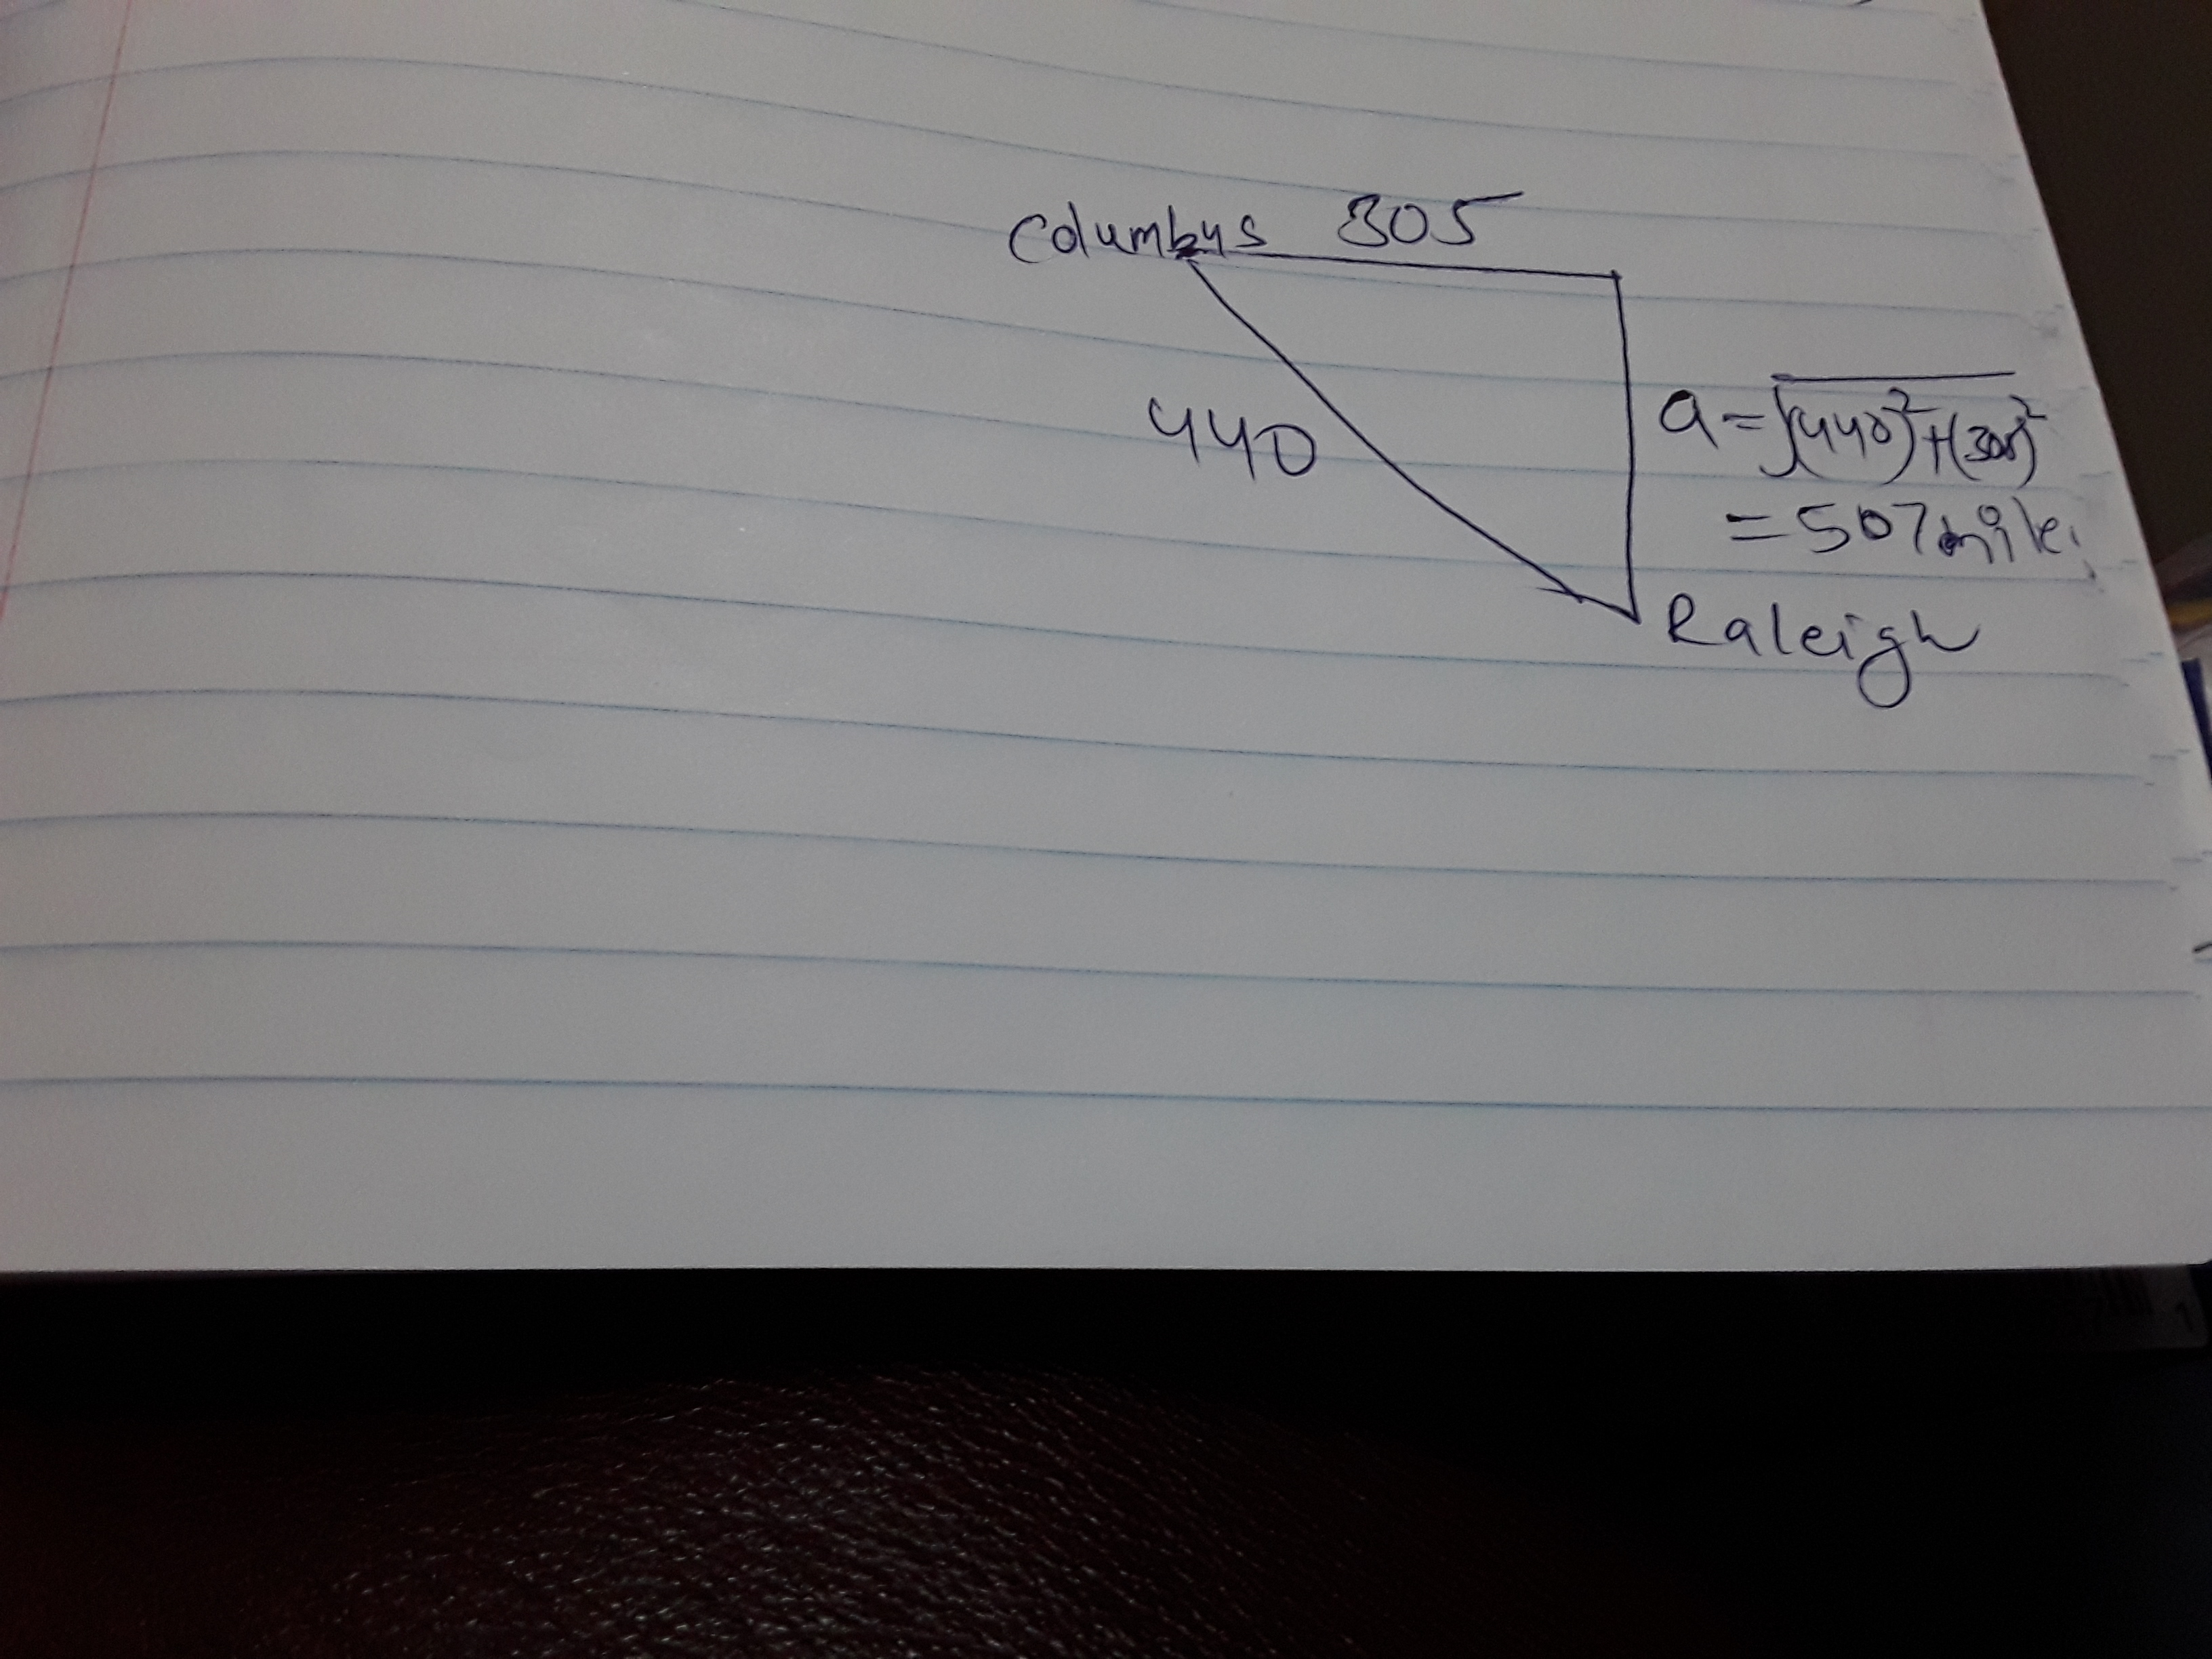 Columbus 305
440
a = √(440)²+(305)²
= 507 mile
Raleigh